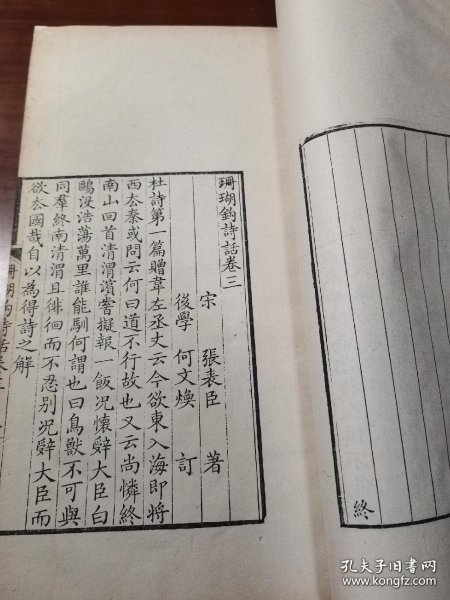 珊瑚鈎詩話卷三
宋 張表臣 著
後學 何文煥 訂
杜詩第一篇贈韋左丞丈云今欲東入海即將
西去秦或問云何曰道不行故也又云尚憐終
南山回首清渭濵嘗擬報一飯况懷辭大臣白
鷗没浩蕩萬里誰能馴何謂也曰鳥獸不可與
同羣終南清渭且徘徊而不忍别况辭大臣而
欲去國哉自以為得詩之解
珊瑚鈎詩話卷三
終
孔夫子旧书网
www.kongfz.com